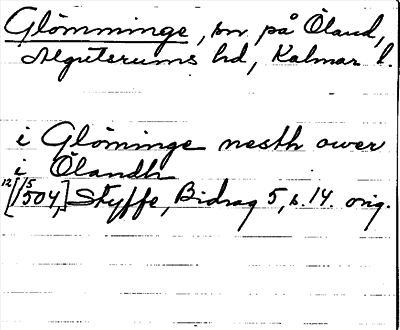 Glömminge, sn på Öland,
Algutsrums hd, Kalmar l.
i Glöminge nesth ower
i Ölandh
[12/5 1504,] Styffe, Bidrag 5, s. 14. orig.